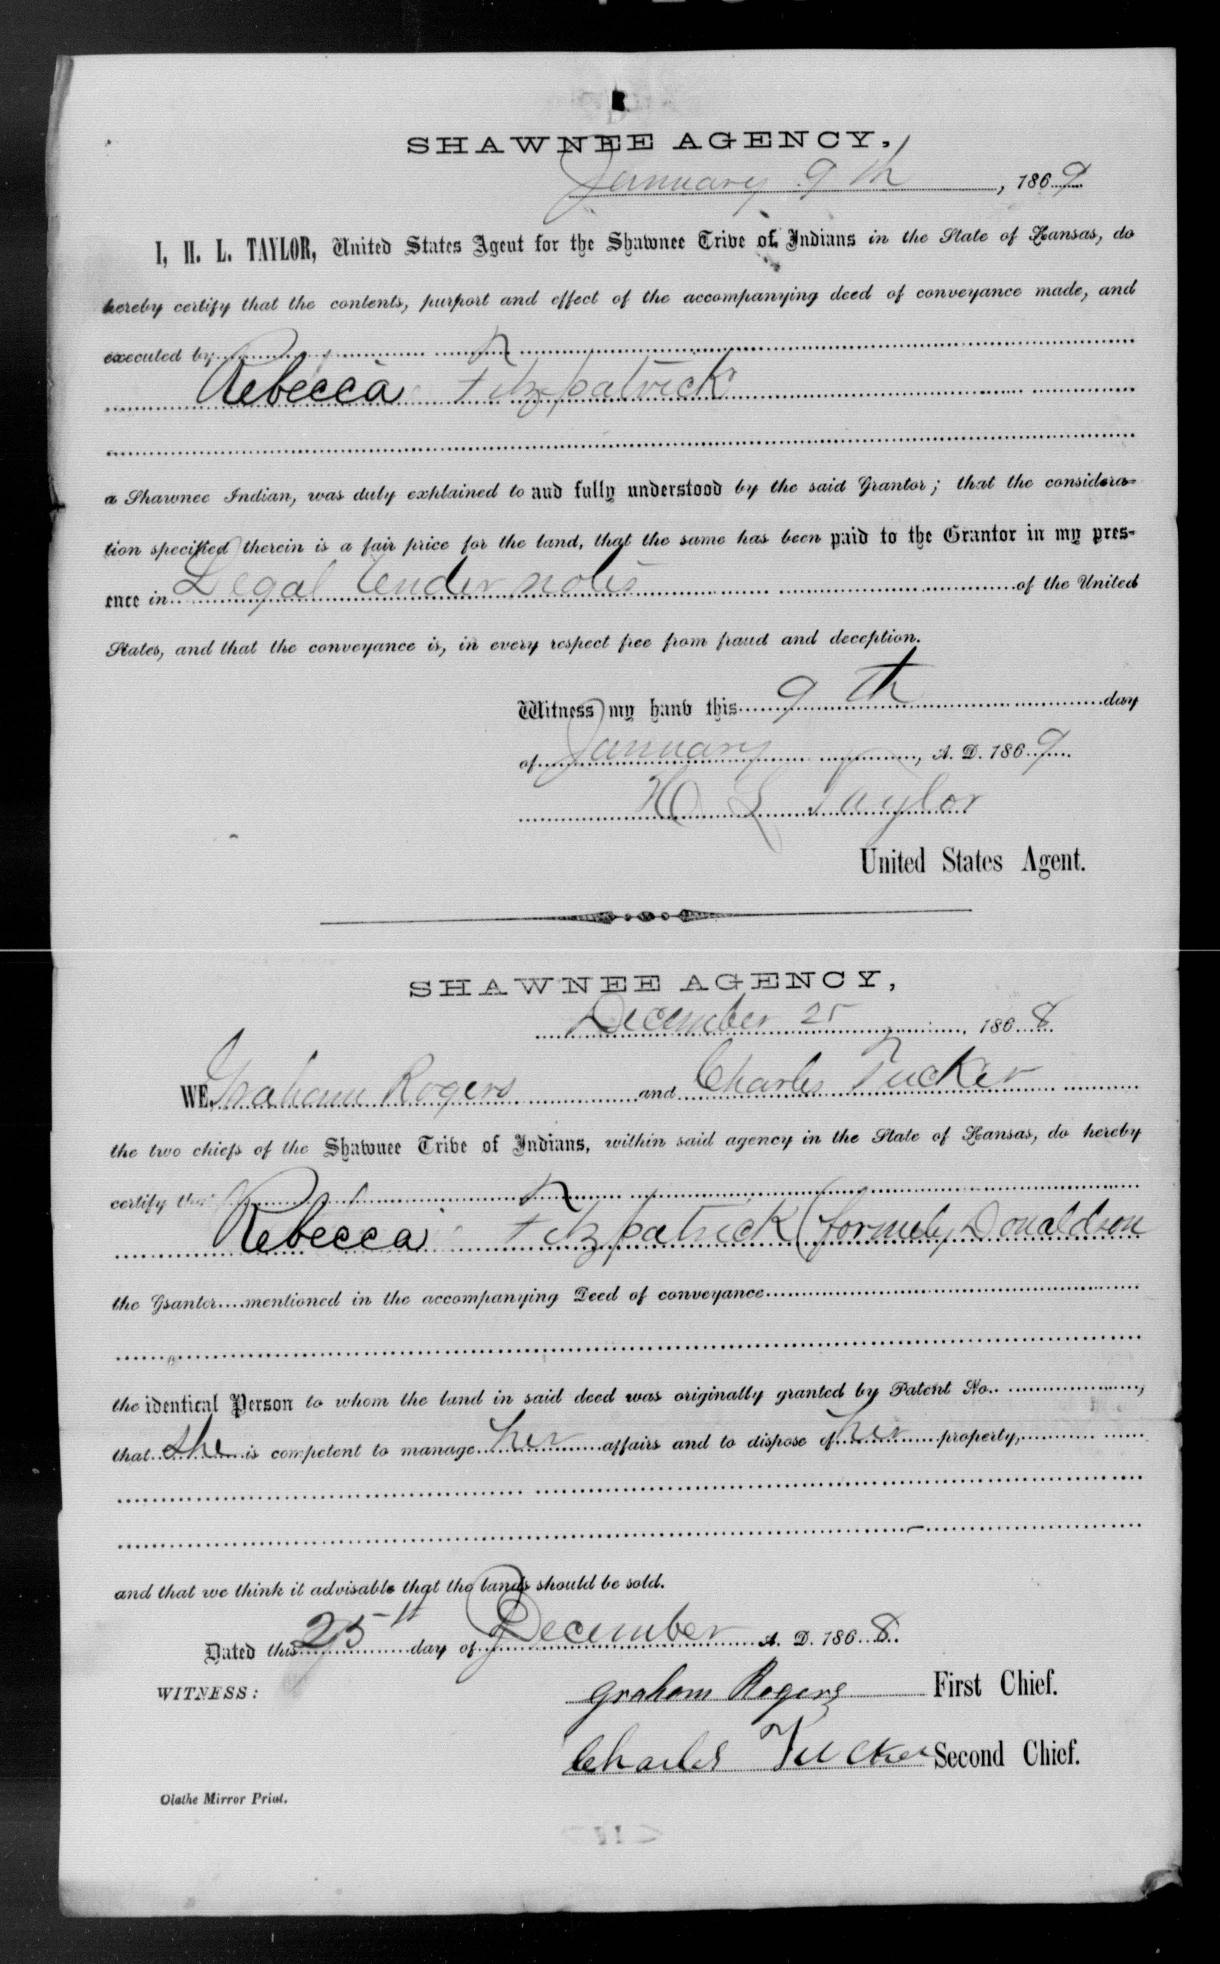 SHAWNEE AGENCY,
January 9th, 1869
I, H. L. TAYLOR, United States Agent for the Shawnee Tribe of Indians in the State of Kansas, do
hereby certify that the contents, purport and effect of the accompanying deed of conveyance made, and
executed by
Rebecca Fitzpatrick
a Shawnee Indian, was duly explained to and fully understood by the said Grantor; that the considera-
tion specified therein is a fair price for the land, that the same has been paid to the Grantor in my pres-
ence in Legal tender notes of the United
States, and that the conveyance is, in every respect free from fraud and deception.
Witness my hand this 9th day
of January, A. D. 1869
H L Taylor
United States Agent.
SHAWNEE AGENCY,
December 25, 1868
WE, Graham Rogers and Charles Tucker
the two chiefs of the Shawnee Tribe of Indians, within said agency in the State of Kansas, do hereby
certify that
Rebecca Fitzpatrick (formely Donaldson
the Grantor mentioned in the accompanying Deed of conveyance
the identical Person to whom the land in said deed was originally granted by Patent No. ,
that she is competent to manage her affairs and to dispose of her property,
and that we think it advisable that the lands should be sold.
Dated this 25th day of December A. D. 1868.
WITNESS:
Graham Rogers First Chief.
Charles Tucker Second Chief.
Olathe Mirror Print.